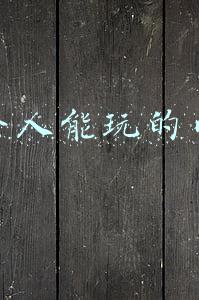 人能玩的